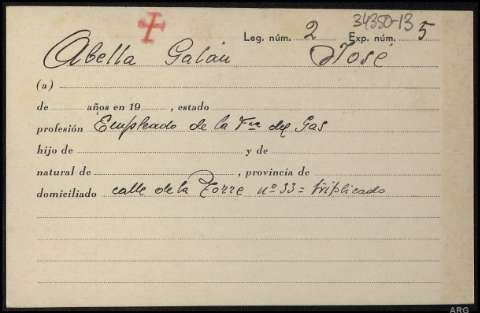 34350-13
Leg. núm. 2 Exp. núm. 5
Abella Galán José
(a)
de años en 19 , estado
profesión Empleado de la Fca del Gas
hijo de y de
natural de , provincia de
domiciliado calle de la Torre nº 33 = triplicado
ARG